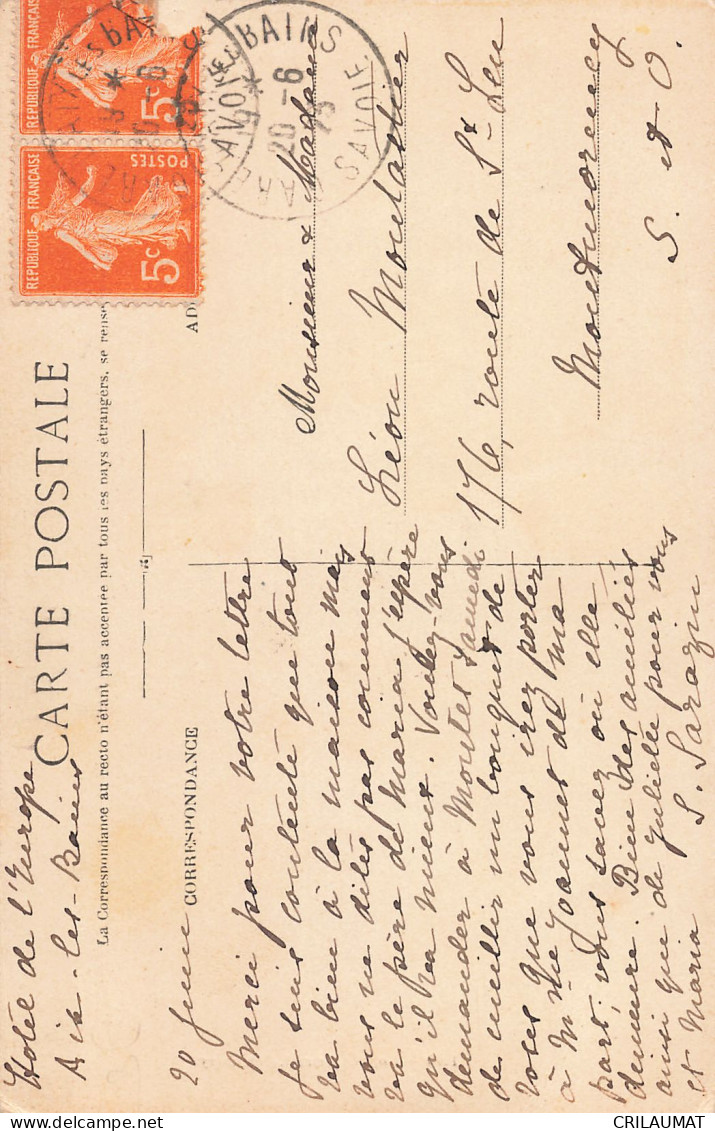 Hotel de l'Europe
Aix-les-Bains
CARTE POSTALE
La Correspondance au recto n'étant pas acceptée par tous les pays étrangers, se rense
CORRESPONDANCE
AD
20 Juin
Merci pour votre lettre
je suis contente que tout
va bien à la maison mais
vous ne dites pas comment
va le père de Maria j'espère
qu'il va mieux. Voulez-vous
demander à Moutet samedi
de cueillir un bouquet de
roses que vous irez porter
à Mme Joannes de ma
part, vous savez où elle
demeure. Bien des amitiés
ainsi que de Juliette pour vous
et Maria S. Sarazin
Monsieur & Madame
Léon Moulavier
176, route de St Leu
Montmorency
S. et O.
REPUBLIQUE FRANÇAISE
5c
REPUBLIQUE FRANÇAISE
POSTES
5c
BAINS
20-6
SAVOIE
CRILAUMAT